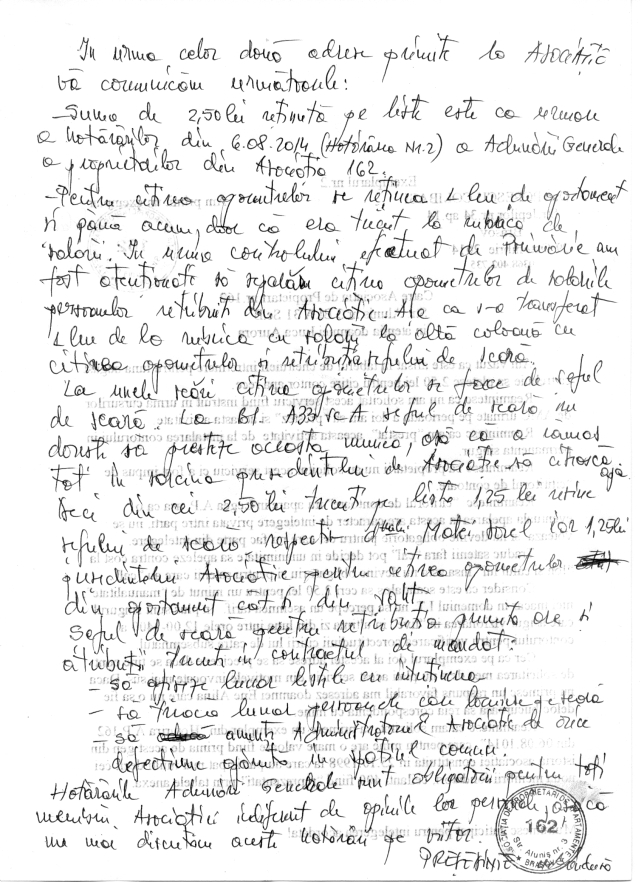 In urma celor două adrese primite la Asociație
vă comunicăm următoarele:
-Suma de 2,50 lei reținută pe liste este ca urmare
a hotărârilor din 6.08.2014 (Hotărârea Nr.2) a Adunării Generale
a proprietarilor din Asociația 162.
-Pentru citirea apometrelor se reținea 1 leu de apartament
și până acum, doar că era trecut la rubrica de
salarii. În urma controlului efectuat de Primărie am
fost atenționați să separăm citirea apometrelor de salariile
persoanelor retribuite din Asociație. Așa ca s-a transferat
1 leu de la rubrica cu salarii la altă coloană cu
citirea apometrelor și retribuția șefului de scară.
La unele scări citirea apometrelor se face de șeful
de scară. La Bl. A33 sc A șeful de scară nu
dorește să presteze această muncă, așa că a rămas
tot în sarcina președintelui de Asociație să citească apă
Deci din cei 2,50 lei trecuți pe liste 1,25 lei revine
șefului de scară respectiv dnei. Matei Dorel iar 1,25 lei
președintelui Asociație pentru citirea apometrelor
din apartament cât și din
Șeful de scară pentru retribuția primită are și
atribuții trecute în contractul de mandat:
- să afișeze lunar listele cu întreținerea
- să treacă lunar persoanele care locuiesc pe scară
- să anunțe Administratorul Asociație de orice
defecțiune apărută în spațiul comun.
Hotărârile Adunării Generale sunt obligatorii pentru toți
membrii Asociației indiferent de opiniile lor personale, așa că
nu mai discutăm aceste hotărâri pe viitor.
PREȘEDINTE
162
Str. Aluniș nr. 3